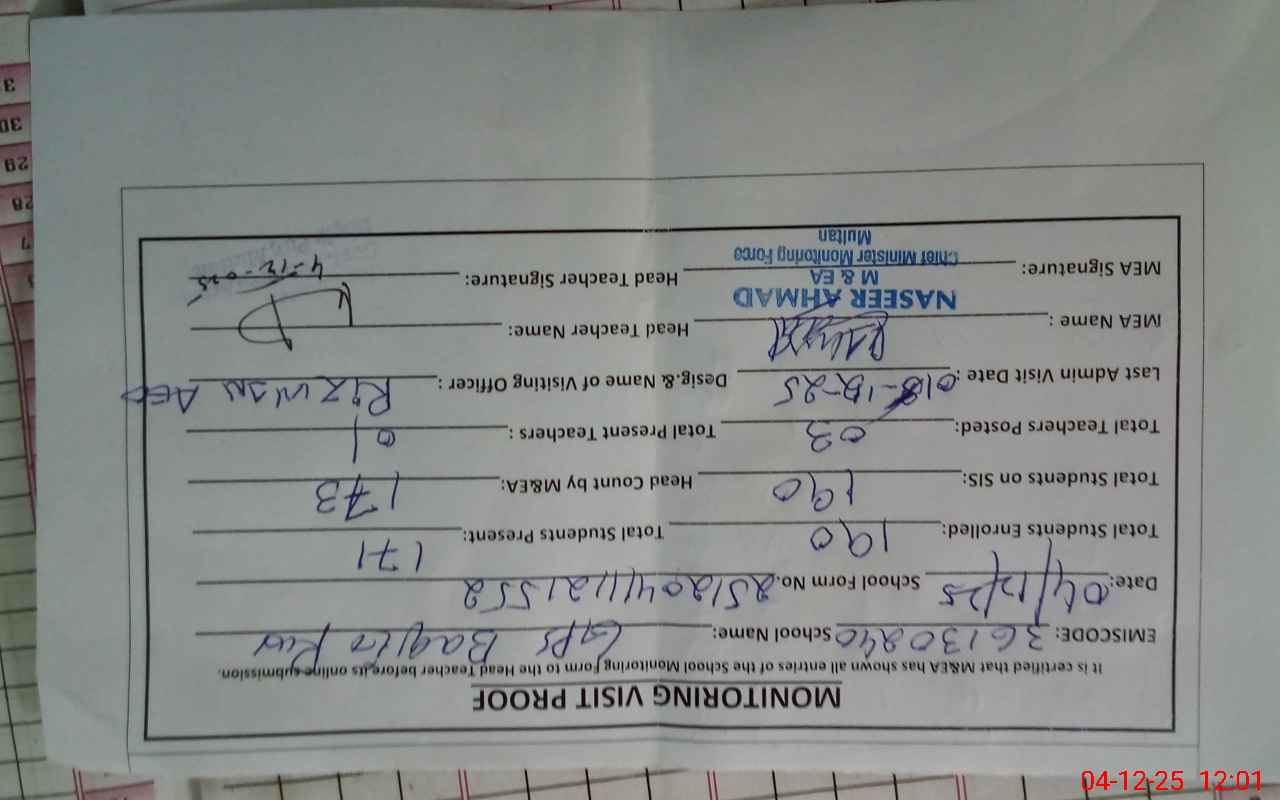 MONITORING VISIT PROOF
It is certified that M&EA has shown all entries of the School Monitoring Form to the Head Teacher before its online submission.
EMISCODE: 36130240 School Name: GPS Baqir Pur
Date: 04/12/25 School Form No. 251204111121552
Total Students Enrolled: 190 Total Students Present: 171
Total Students on SIS: 190 Head Count by M&EA: 173
Total Teachers Posted: 03 Total Present Teachers : 01
Last Admin Visit Date : -25 Desig.& Name of Visiting Officer : Rizwan AEO
MEA Name : Head Teacher Name:
NASEER AHMAD
M & EA
MEA Signature: Head Teacher Signature: 4-12-025
Chief Minister Monitoring Force
Multan
3
30
29
28
7
04-12-25 12:01